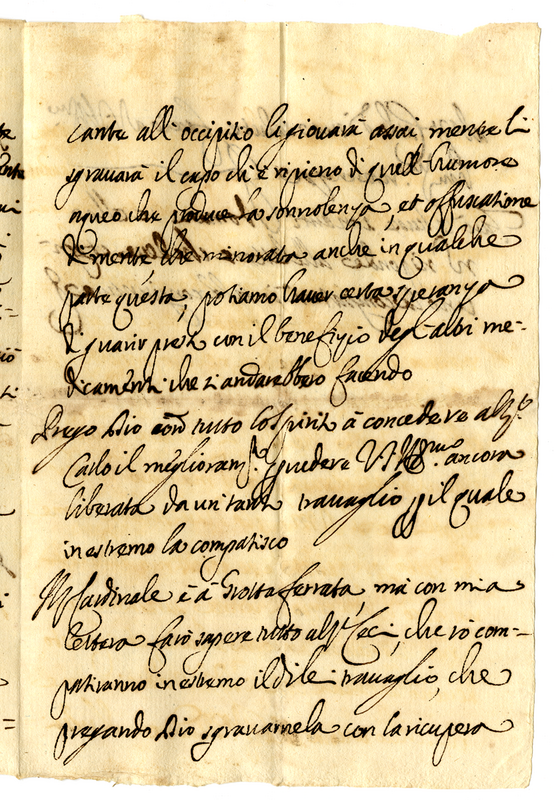 cante all'occipitio li giovarà assai mentre li
sgravarà il capo ch'è ripieno di quell'humore
aqueo che produce la sonnolenza, et offuscatione
di mente, che minorata anche in qualche
parte questa, potiamo haver certa speranza
di guarir presto con il benefizio degl'altri me-
dicamenti che si andarebbero facendo
Prego Dio con tutto lo spirito à concedere al S.r
Carlo il miglioram.to p vedere V.S. Ill.ma ancora
liberata da un tanto travaglio, p il quale
in estremo la compatisco
Il S.r Cardinale è à Grotta ferrata, mà con mia
lettera farò sapere tutto al S.r Ceci, che io com-
patiranno in estremo il di lei travaglio, che
pregando Dio sgravarnela con la ricupera